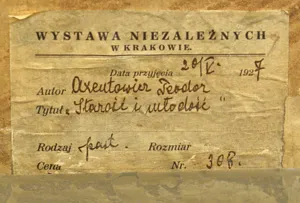 WYSTAWA NIEZALEŻNYCH
W KRAKOWIE.
Data przyjęcia 20/V. 1927
Autor Axentowicz Teodor
Tytuł „Starość i młodość"
Rodzaj past. Rozmiar
Cena Nr. 308.